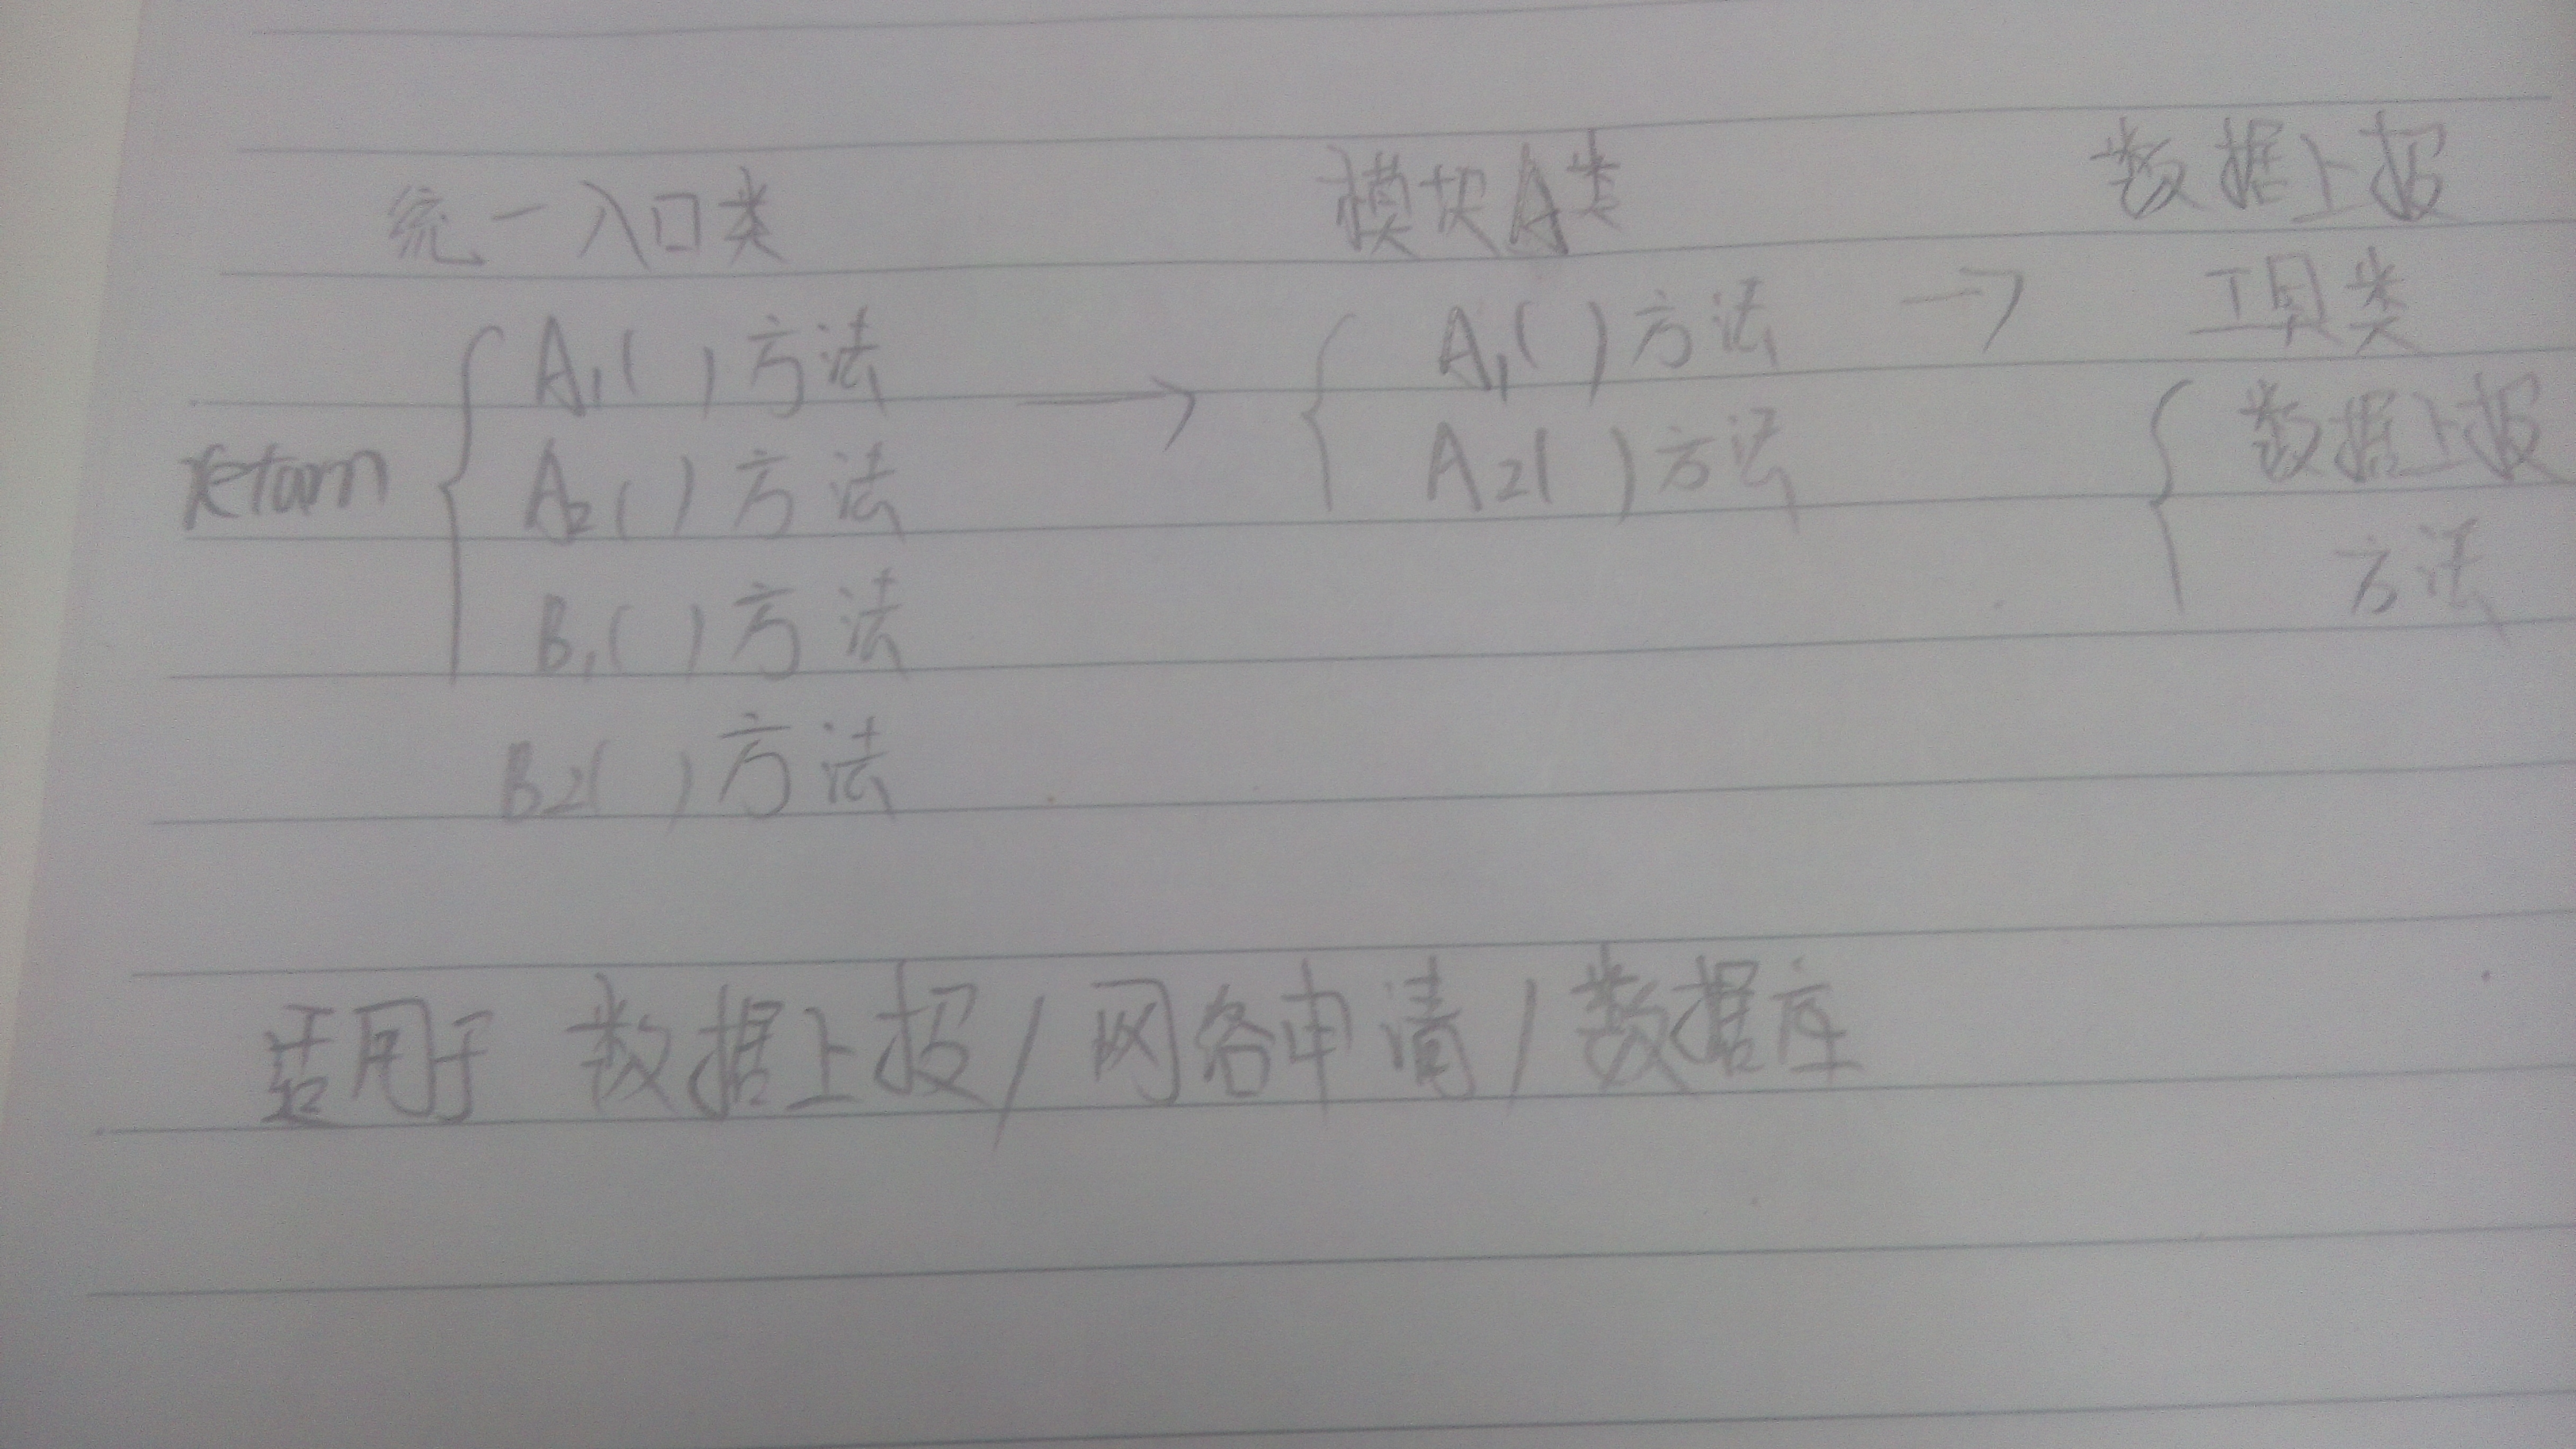 统一入口类 模块A类 数据上报
工具类
A1( )方法 → A1( )方法 →
return A2( )方法 A2( )方法 数据上报
方法
B1( )方法
B2( )方法
适用于 数据上报/网络申请/数据库